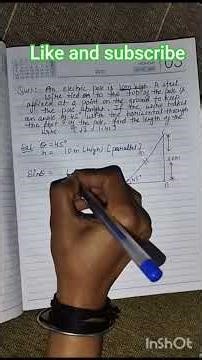 Like and subscribe
Ques: An electric pole is 10m high. A steel
wire tied to the top of the pole is
affixed at a point on the ground to keep
the pole straight. If the wire makes
an angle 45° with the horizontal through
the foot of the pole, find the length of the
wire
θ = 45°
h = 10m (high)
Sinθ =
45°
10m
InShOt